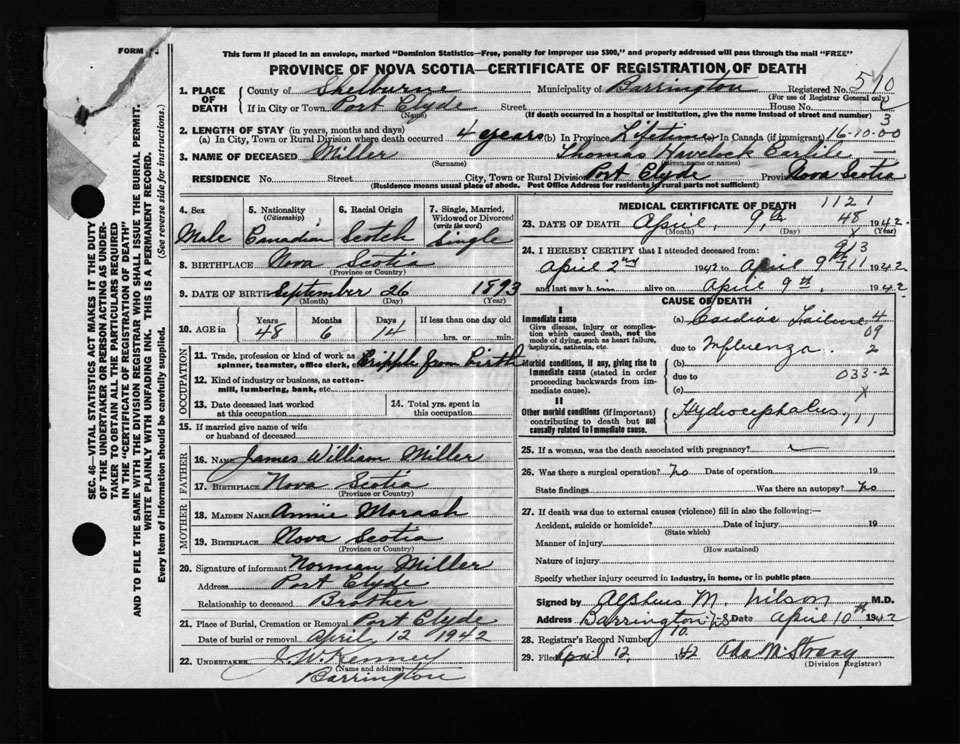 FORM
This form if placed in an envelope, marked "Dominion Statistics—Free, penalty for improper use $300," and properly addressed will pass through the mail "FREE"
PROVINCE OF NOVA SCOTIA—CERTIFICATE OF REGISTRATION OF DEATH
SEC. 46—VITAL STATISTICS ACT MAKES IT THE DUTY
OF THE UNDERTAKER OR PERSON ACTING AS UNDER-
TAKER TO OBTAIN ALL THE PARTICULARS REQUIRED
IN THE "CERTIFICATE OF REGISTRATION OF DEATH"
AND TO FILE THE SAME WITH THE DIVISION REGISTRAR WHO SHALL ISSUE THE BURIAL PERMIT.
WRITE PLAINLY WITH UNFADING INK. THIS IS A PERMANENT RECORD.
Every item of information should be carefully supplied. (See reverse side for instructions.)
1. PLACE OF DEATH
County of Shelburne Municipality of Barrington Registered No. 510
(For use of Registrar General only)
If in City or Town Port Clyde Street House No.
(Name) (If death occurred in a hospital or institution, give the name instead of street and number) 3
2. LENGTH OF STAY (in years, months and days)
(a) In City, Town or Rural Division where death occurred 4 years (b) In Province Lifetime (c) In Canada (if immigrant) 16-10-00
3. NAME OF DECEASED Miller Thomas Havelock Earlile
(Surname) (Given name or names)
RESIDENCE No. Street City, Town or Rural Division Port Clyde Province Nova Scotia
(Residence means usual place of abode. Post Office Address for residents in rural parts not sufficient)
4. Sex Male
5. Nationality (Citizenship) Canadian
6. Racial Origin Scotch
7. Single, Married, Widowed or Divorced (write the word) Single
8. BIRTHPLACE Nova Scotia
(Province or Country)
9. DATE OF BIRTH September 26 1893
(Month) (Day) (Year)
10. AGE in Years 48 Months 6 Days 14 If less than one day old
hrs. or min.
OCCUPATION
11. Trade, profession or kind of work as spinner, teamster, office clerk, Cripple from Birth
12. Kind of industry or business, as cotton-mill, lumbering, bank, etc.
13. Date deceased last worked at this occupation
14. Total yrs. spent in this occupation
15. If married give name of wife or husband of deceased
FATHER
16. Name James William Miller
17. Birthplace Nova Scotia
(Province or Country)
MOTHER
18. Maiden Name Annie Morash
19. Birthplace Nova Scotia
(Province or Country)
20. Signature of informant Norman Miller
Address Port Clyde
Relationship to deceased Brother
21. Place of Burial, Cremation or Removal Port Clyde
Date of burial or removal April 12 1942
22. UNDERTAKER J. W. Kenney
(Name and address)
Barrington
MEDICAL CERTIFICATE OF DEATH 1121
23. DATE OF DEATH April, 9th 48 1942
(Month) (Day) x (Year)
24. I HEREBY CERTIFY that I attended deceased from: 9/13
April 2nd 1942 to April 9th 111 1942
and last saw him alive on April 9th, 1942
CAUSE OF DEATH
I
Immediate cause
Give disease, injury or complication which caused death, not the mode of dying, such as heart failure, asphyxia, asthenia, etc.
(a) Cardiac Failure 4
09
due to Influenza 2
Morbid conditions, if any, giving rise to immediate cause (stated in order proceeding backwards from immediate cause).
(b)
due to 033-2
(c) x
II
Other morbid conditions (if important) contributing to death but not causally related to immediate cause.
Hydrocephalus, 111
25. If a woman, was the death associated with pregnancy?
26. Was there a surgical operation? No Date of operation 19
State findings Was there an autopsy? No
27. If death was due to external causes (violence) fill in also the following:—
Accident, suicide or homicide? Date of injury 19
(State which)
Manner of injury
(How sustained)
Nature of injury
Specify whether injury occurred in industry, in home, or in public place
Signed by Alphus M. Wilson M.D.
Address Barrington NS Date April 10th 1942
28. Registrar's Record Number 10.
29. Filed April 12, 1942 Ada M. Strang
(Division Registrar)